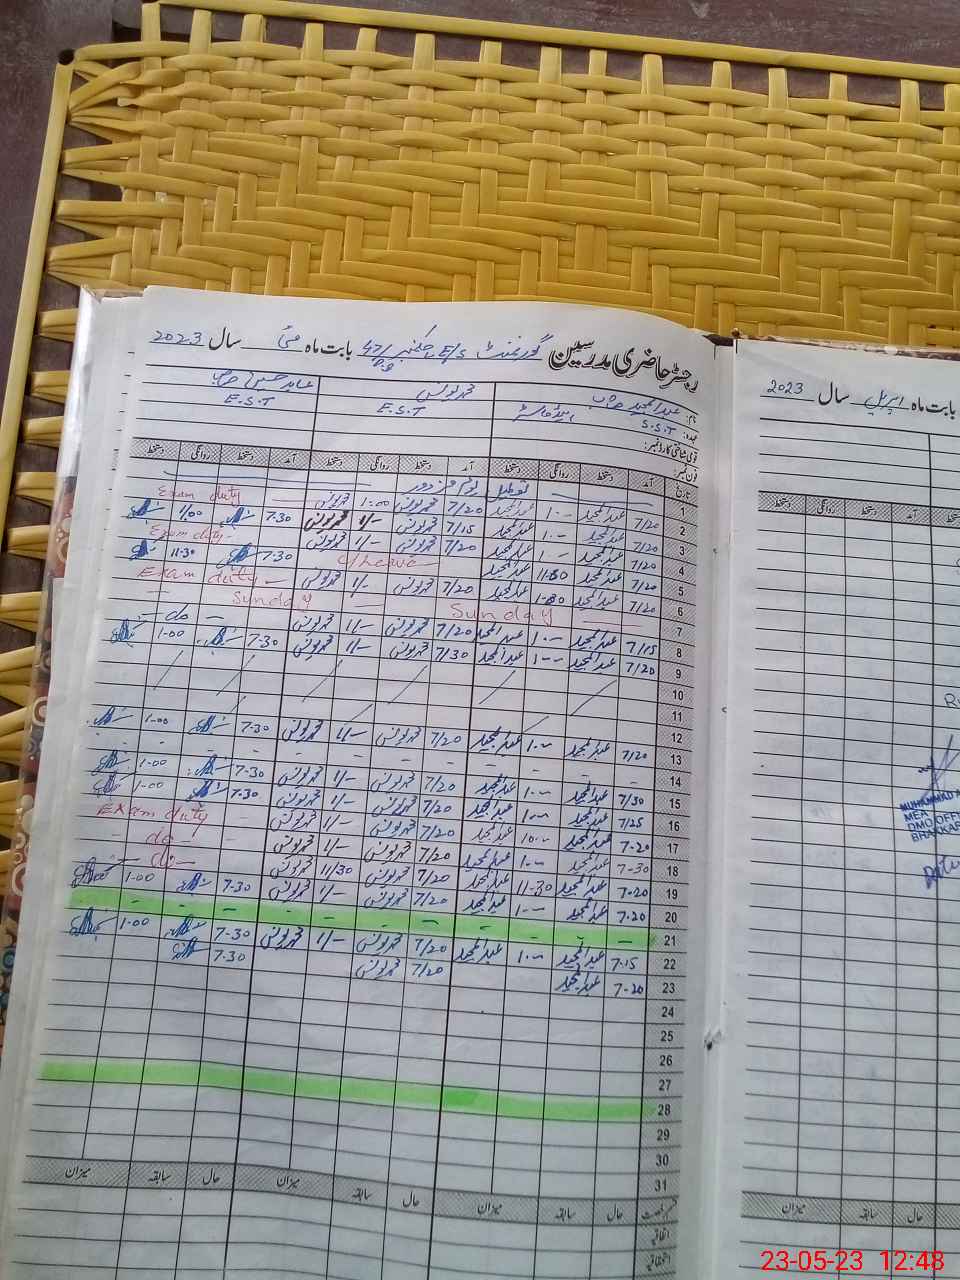 رجسٹر حاضری مدرسین گورنمنٹ E/S چکنمبر 47/ بابت ماہ مئی سال 2023
نام: عبدالمجید صاحب محمد یونس عابد حسین صاحب
عہدہ: S.S.T ہیڈ ماسٹر E.S.T E.S.T
قومی شناختی کارڈ نمبر:
فون نمبر:
تاریخ آمد دستخط روانگی دستخط آمد دستخط روانگی دستخط آمد دستخط روانگی دستخط
1 تعطیل یوم مزدور
2 7/20 عبدالمجید 1.-- عبدالمجید 7/20 محمد یونس 1:00 محمد یونس Exam duty
3 7/20 عبدالمجید 1.-- عبدالمجید 7/15 محمد یونس 1/- محمد یونس 7.30 1/00
4 7/20 عبدالمجید 1.-- عبدالمجید 7/20 محمد یونس 1/- محمد یونس Exam duty-
5 7/20 عبدالمجید عبدالمجید c/Leave 7.30 11.30
6 7/20 عبدالمجید عبدالمجید 7/20 محمد یونس 1/- محمد یونس Exam duty-
7 Sunday Sunday
8 7/15 عبدالمجید 1.-- عبدالمجید 7/20 محمد یونس 1/- محمد یونس - do -
9 7/20 عبدالمجید 1-- عبدالمجید 7/30 محمد یونس 1/- محمد یونس 7-30 1-00
10
11
12
13 7/20 عبدالمجید 1.-- عبدالمجید 7/20 محمد یونس 1/- محمد یونس 7.30 1-00
14 - - - - - - - -
15 7/30 عبدالمجید 1.-- عبدالمجید 7/20 محمد یونس 1/- محمد یونس 7-30 1-00
16 7/25 عبدالمجید 1.-- عبدالمجید 7/20 محمد یونس 1/- محمد یونس 7.30 1-00
17 7-20 عبدالمجید عبدالمجید 7/20 محمد یونس 1/- محمد یونس Exam duty
18 7-30 عبدالمجید 1.-- عبدالمجید 7/20 محمد یونس 1/- محمد یونس - do -
19 7.20 عبدالمجید 11-30 عبدالمجید 7/20 محمد یونس 11/30 محمد یونس - do -
20 7.20 عبدالمجید 1.-- عبدالمجید 7/20 محمد یونس 1/- محمد یونس 7-30 1-00
21 - - - - - - - -
22 7.15 عبدالمجید 1.-- عبدالمجید 7/20 محمد یونس 1/- محمد یونس 7-30 1-00
23 7-20 عبدالمجید 7/20 محمد یونس 7-30
24
25
26
27
28
29
30
31
حال سابقہ میزان حال سابقہ میزان حال سابقہ میزان
اتفاقیہ
استحقاقیہ
بابت ماہ اپریل سال 2023
آمد دستخط روانگی دستخط
MUHAMMAD
MEA
DMO OFF
BHAKKAR
حال سابقہ میزان
23-05-23 12:48